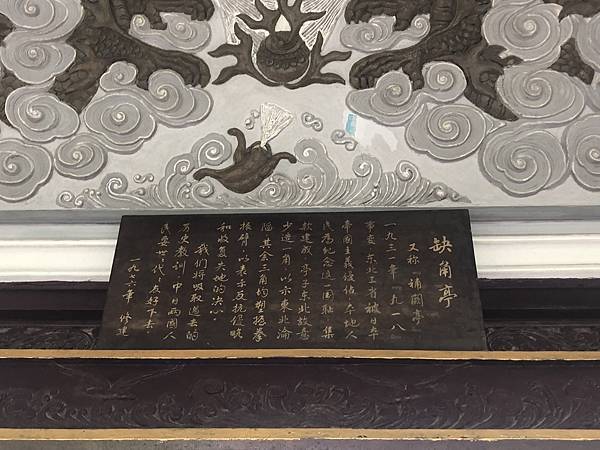 缺角亭
又称「補闕亭」
一九三一年「九一八」
事变，东北三省被日本
帝國主義侵佔，本地人
民為紀念這一國耻，集
款建成亭子，东北故意
少造一角，以示東北淪
陷，其余三角均塑拳
振臂，以表示反抗侵略
和收复失地的决心。
我们将吸取過去的
历史教训，中日两國人
民要世世代代友好下去。
一九八六年 修建